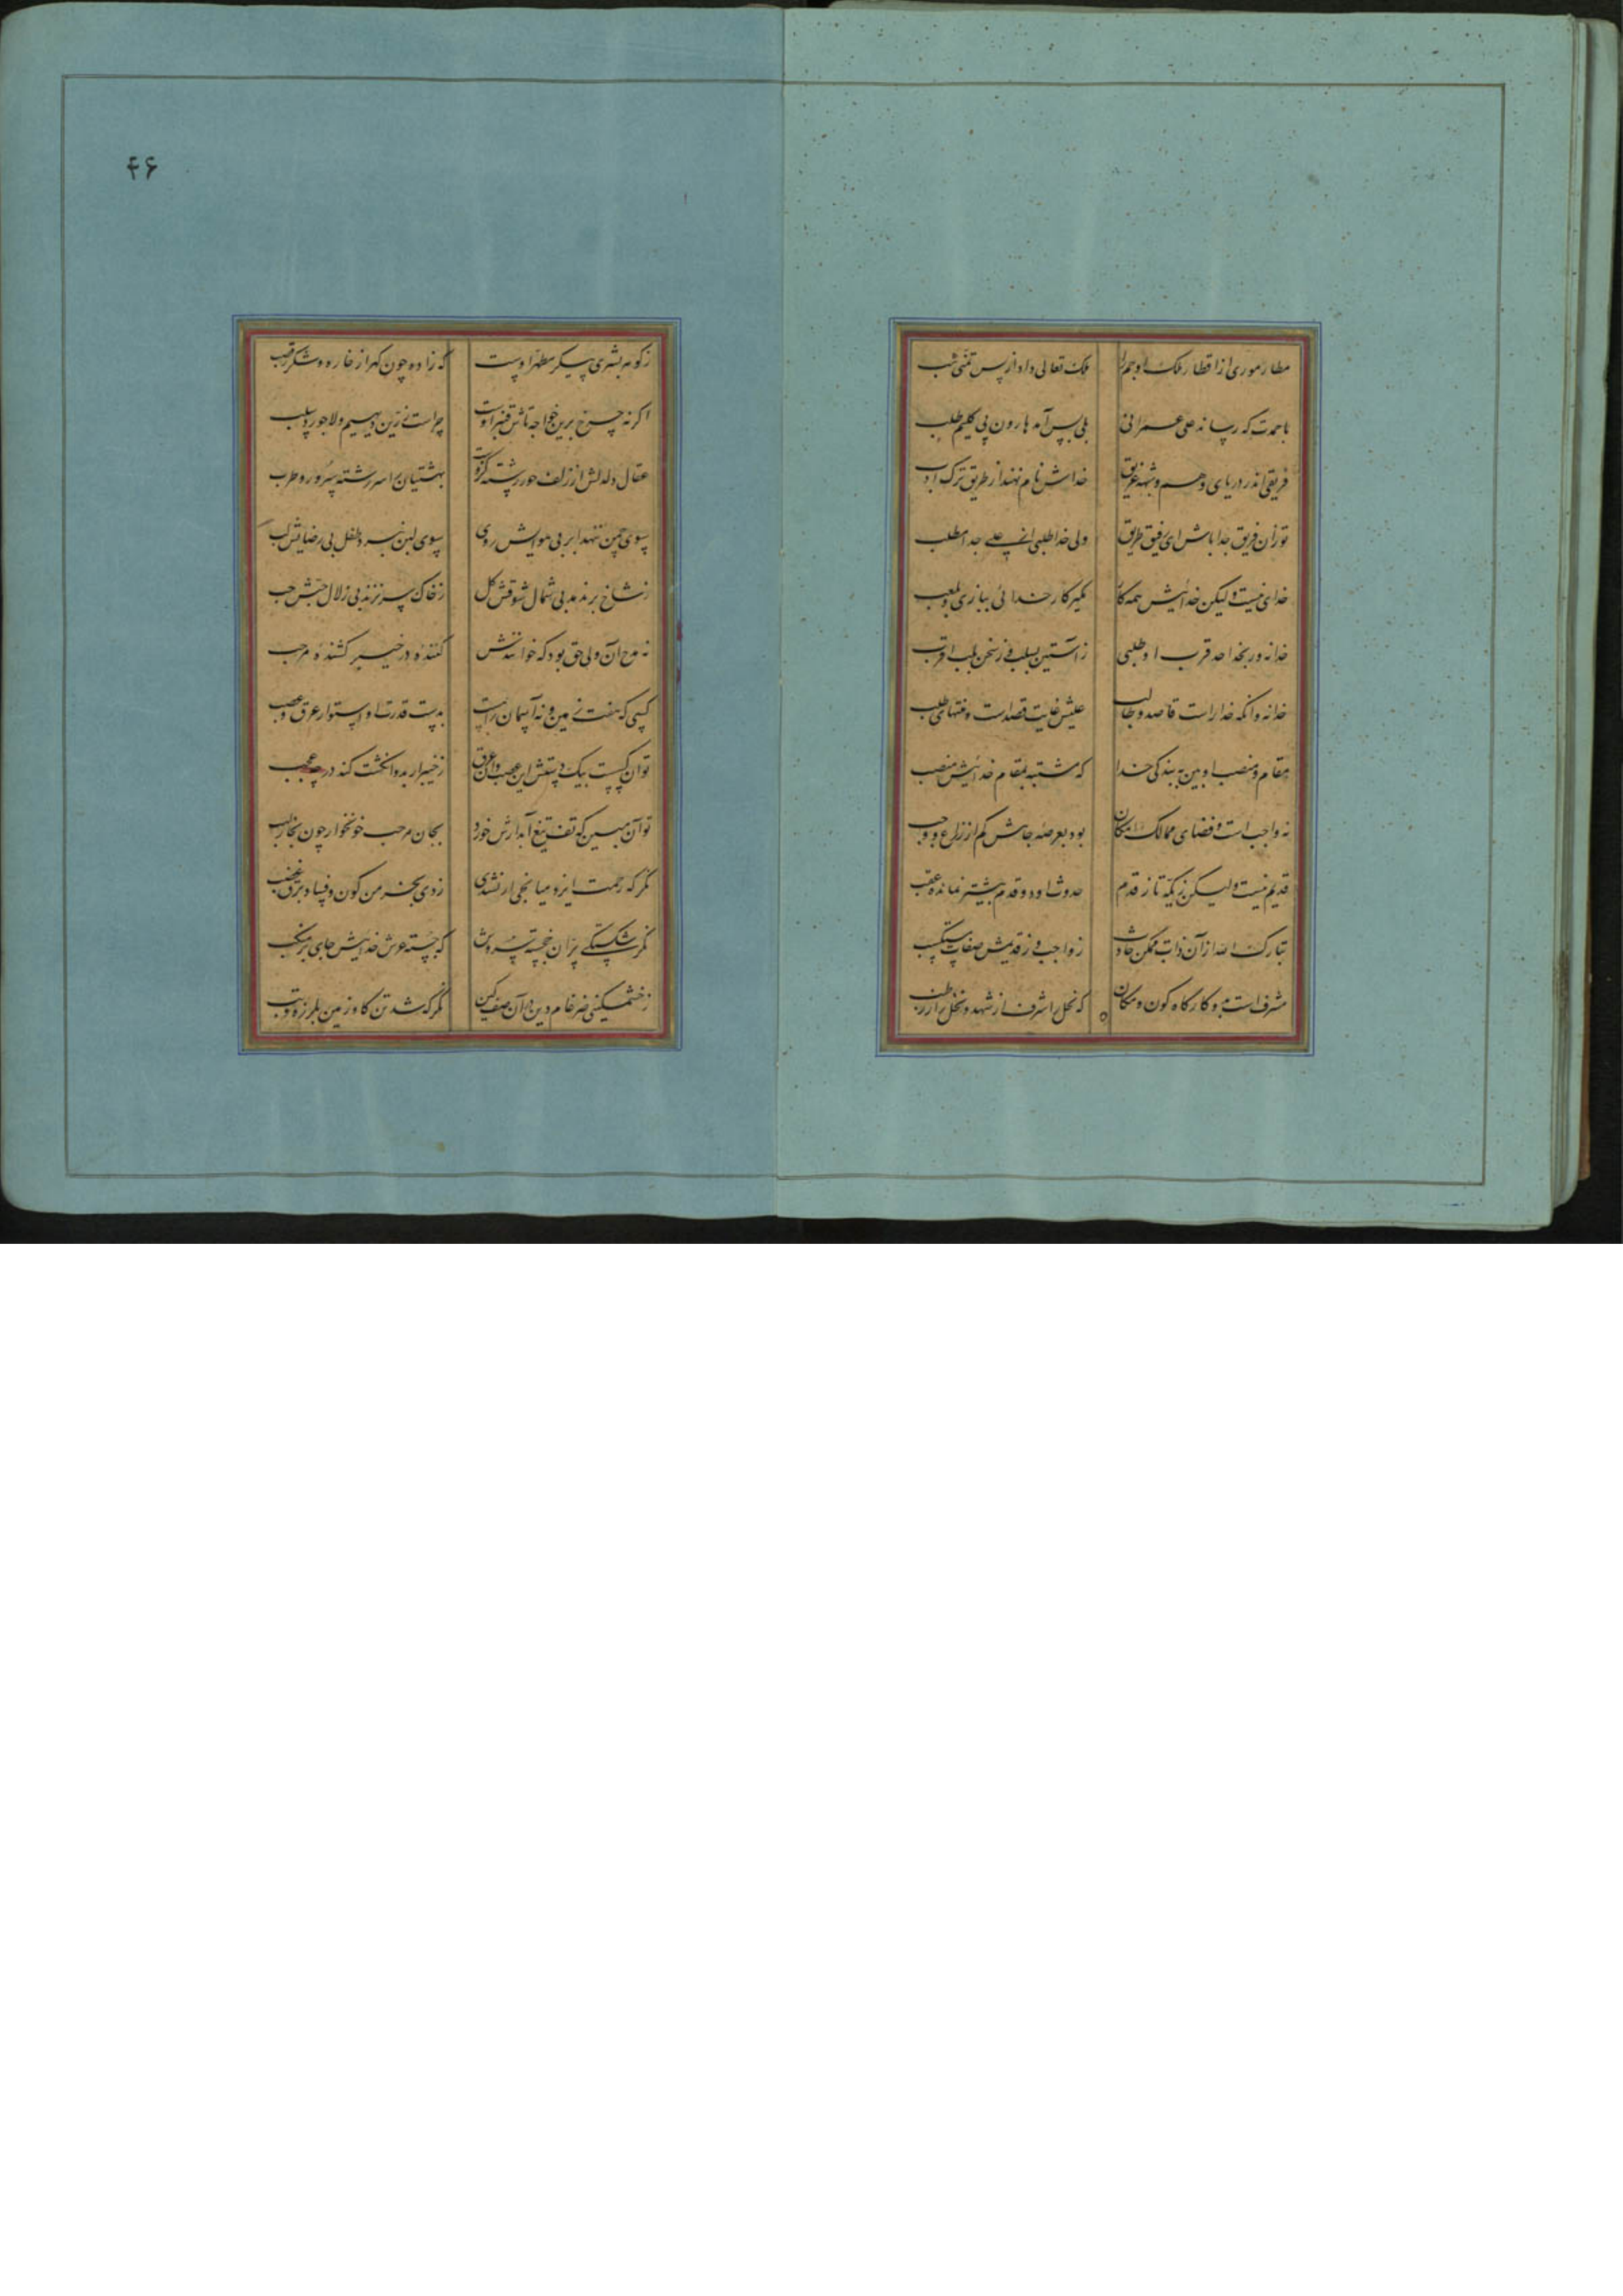 ۴۶
مطار موری از اقطار ملک او جم را ملک تعالی داد از پس تمنی شب
با حمدت که رساند علی عمرانی بلی بپس آمد هارون پی کلیم طلب
فریقی اندر دریای وهم و شبهه غریق خداش نام نهند از طریق ترک ادب
تو زان فریق جدا باش ای رفیق طریق ولی خدا طلبی از علی جدا مطلب
خدای نیست ولیکن خدائیش همه کار مگیر کار خدائی ببازی و بلعب
خدا نه ور بخدا حد قرب او طلبی ز آستین بسلب نی ز تن بلب اقرب
خدا نه وانکه خدا راست قاصد و طالب علیش غایت قصد است و منتهای طلب
مقام و منصب او بین به بندگی خدا که مشتبه بمقام خدائیش منصب
نه واجب است و فضای ممالک امکان بود بعرصه جاهش کم از ذراع و وجب
قدیم نیست ولیکن ز یکه تاز قدم حدوث او دو قدم بیشتر نمانده عقب
تبارک الله از آن ذات ممکن حادث ز واجب و ز قدیمش صفات مکتسب
مشرف است بدو کارگاه کون و مکان که نحل را شرف از شهد و نخل را ز رطب
ز گونه بشری پیکر مطهر اوست که زاده چون گهر از خاره و شکر ز قصب
اگر نه چرخ برین خواجه تاش قنبر اوست چراست زرین دیهیم و لاجورد سلب
عقال دلدلش از زلف حور رشته کزوست بهشتیان را سررشته سرور و طرب
سوی چمن ننهد ابر بی هوایش روی سوی لبن نبرد طفل بی رضایش لب
ز شاخ برندمد بی شمال شوقش گل ز خاک سر نزند بی زلال حبش حب
نه مدح آن ولی حق بود که خوانندش کننده در خیبر کشنده مرحب
کسی که هفت زمین و نه آسمان راست بدست قدرت او استوار عرق و عصب
توان گسست بیک دستش این عصب وان عرق ز خیبر ار بدو انگشت کند در چه عجب
تو آن مبین که تف تیغ آبدارش خورد بجان مرحب خونخوار چون بخار لهب
نگر که رحمت ایزد میانجی ار نشدی زدی بخرمن کون و فساد برق غضب
نگر شکستگی پر آن خجسته سروش که جسته عرش خدایش جای بر منکب
ز خشمگینی ضرغام دین در آن صف کین نگر که شد تن گاو زمین بلرزه و تب